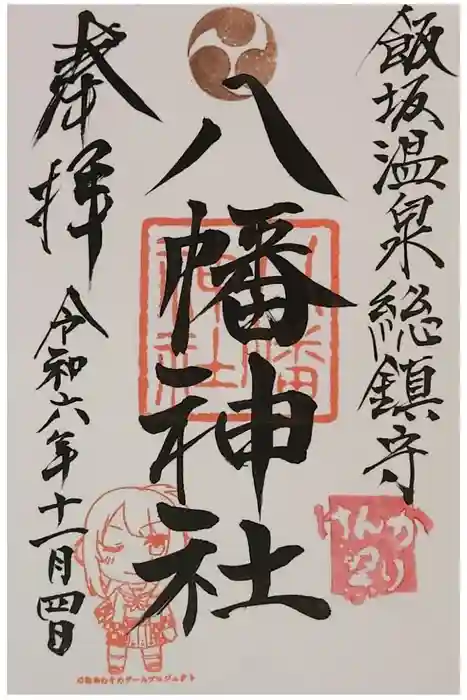 飯坂温泉総鎮守
八幡神社
奉拝
令和六年十一月四日
八幡
神社
けんか
祭り